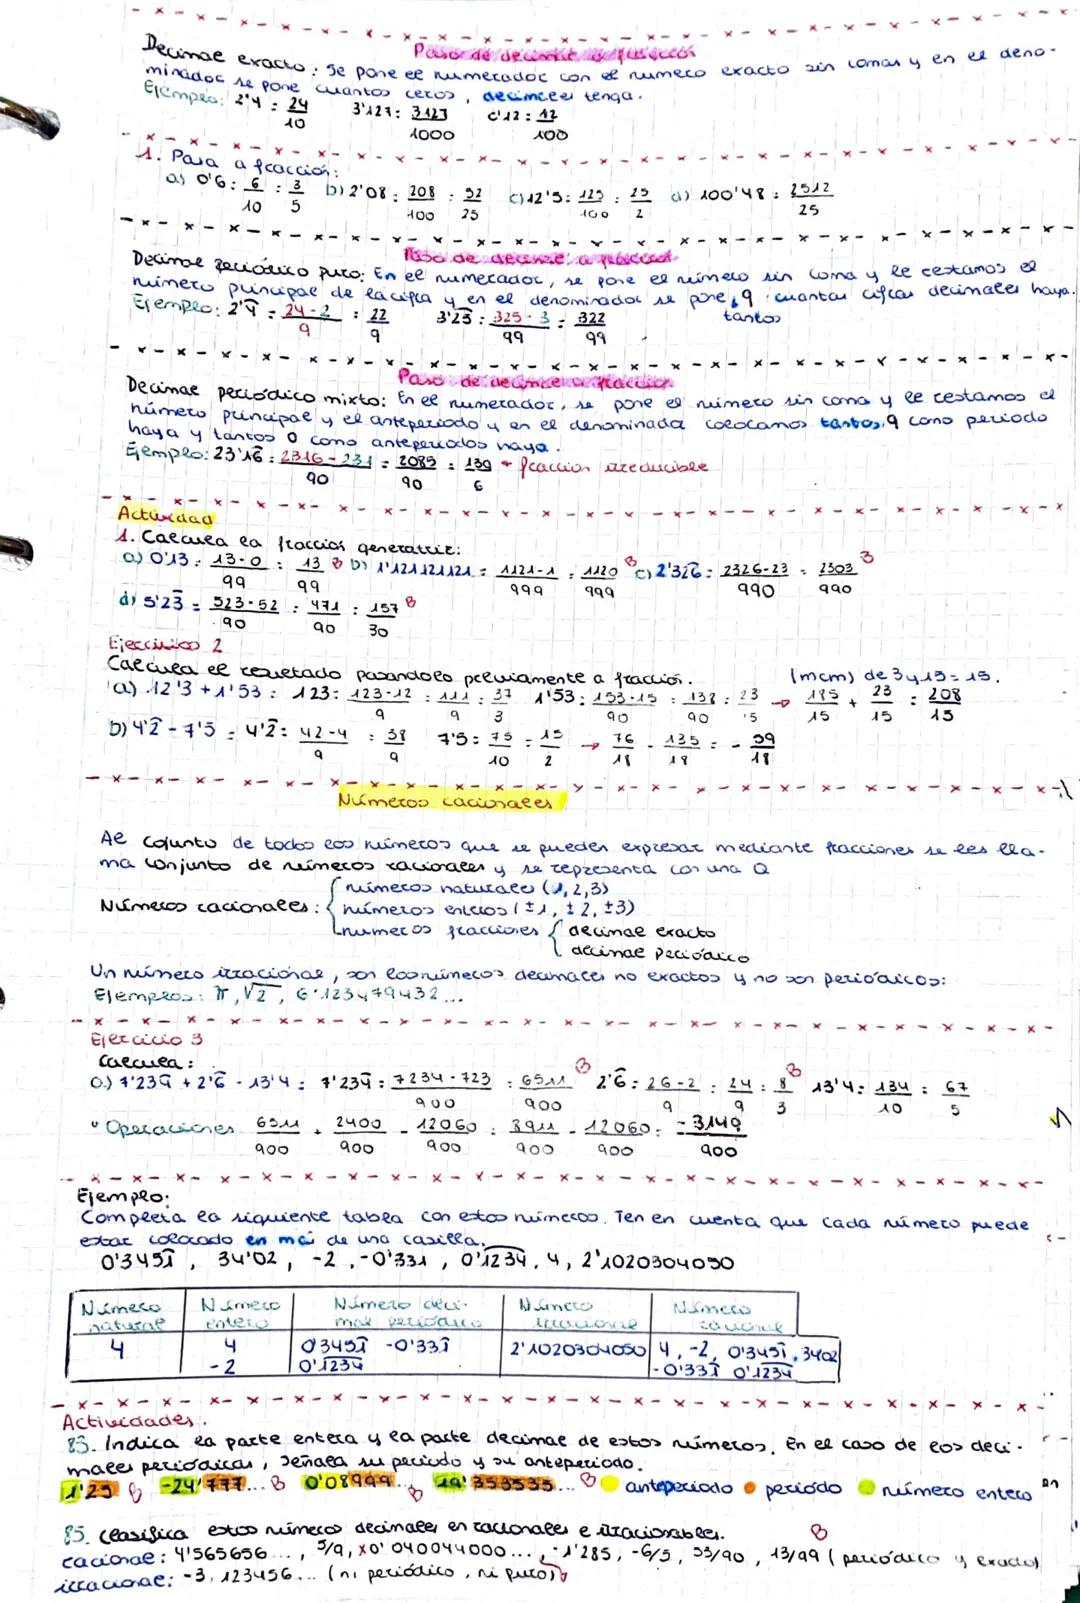 Paso de decimal a fracción
Decimal exacto: Se pone el numerador con el numero exacto sin comas y en el deno-
minador se pone cuantos ceros, decimales tenga.
Ejemplo: 2'4 = 24/10   3'127 = 3127/1000   0'12 = 12/100
1. Pasa a fracción:
a) 0'6 = 6/10 = 3/5   b) 2'08 = 208/100 = 52/25   c) 12'5 = 125/100 = 25/2   d) 100'48 = 2512/25
Paso de decimal a fracción
Decimal periódico puro: En el numerador, se pone el número sin coma y le restamos el
número principal de la cifra y en el denominador se pone, 9 cuantas cifras decimales haya.
tantos
Ejemplo: 2'4 = 24-2/9 = 22/9   3'25 = 325-3/99 = 322/99
Paso de decimal a fracción
Decimal periódico mixto: En el numerador, se pone el número sin coma y le restamos el
número principal y el anteperiodo y en el denominada colocamos tantos 9 como periodo
haya y tantos 0 como anteperiodos haya.
Ejemplo: 23'16 = 2316-231/90 = 2085/90 = 139/6 → fracción irreducible
Actividad
1. Calcula la fracción generatriz:
a) 0'13 = 13-0/99 = 13/99 B   b) 1'121121121 = 1121-1/999 = 1120/999 B   c) 2'326 = 2326-23/990 = 2303/990 B
d) 5'23 = 523-52/90 = 471/90 = 157/30 B
Ejercicio 2
Calcula el resultado pasandolo previamente a fracción.   (mcm) de 3 y 15 = 15.
a) 12'3 + 1'53 = 123 = 123-12/9 = 111/9 = 37/3   1'53 = 153-15/90 = 138/90 = 23/15 → 185/15 + 23/15 = 208/15
b) 4'2 - 7'5 = 4'2 = 42-4/9 = 38/9   7'5 = 75/10 = 15/2 → 76/18 - 135/18 = - 59/18
Números racionales
Al cojunto de todos los números que se pueden expresar mediante fracciones se les lla-
ma conjunto de números racionales y se representa con una Q
números naturales (1, 2, 3)
Números racionales: números enteros (±1, ±2, ±3)
numeros fracciones decimal exacto
decimal periódico
Un número irracional, son los números decimales no exactos y no son periódicos:
Ejemplos: π, √2, 6'123479432...
Ejercicio 3
Calcula:
a) 7'239 + 2'6 - 13'4 = 7'239 = 7234-723/900 = 6511/900 B   2'6 = 26-2/9 = 24/9 = 8/3 B   13'4 = 134/10 = 67/5
Operaciones   6511/900 + 2400/900 - 12060/900 = 8911/900 - 12060/900 = -3149/900
Ejemplo:
Completa la siguiente tabla con estos números. Ten en cuenta que cada número puede
estar colocado en más de una casilla.
0'3451, 34'02, -2, -0'331, 0'1234, 4, 2'1020304050
Número natural   Número entero   Número deci-mal periódico   Número irracional   Número racional
4   4   0'3451 -0'331   2'1020304050   4, -2, 0'3451, 3402
-2   0'1234   -0'331 0'1234
Actividades.
83. Indica la parte entera y la parte decimal de estos números. En el caso de los deci-
males periódicas, señala su periodo y su anteperiodo.
1'25 B   -24'777... B   0'08999... B   19'353535... B   anteperiodo   periodo   número entero
85. Clasifica estos números decimales en racionales e irracionables.   B
racional: 4'565656..., 5/9, x0'040044000..., -1'285, -6/5, 53/90, 13/99 (periódico y exacto)
irracional: -3,123456... (ni periódico, ni puro)